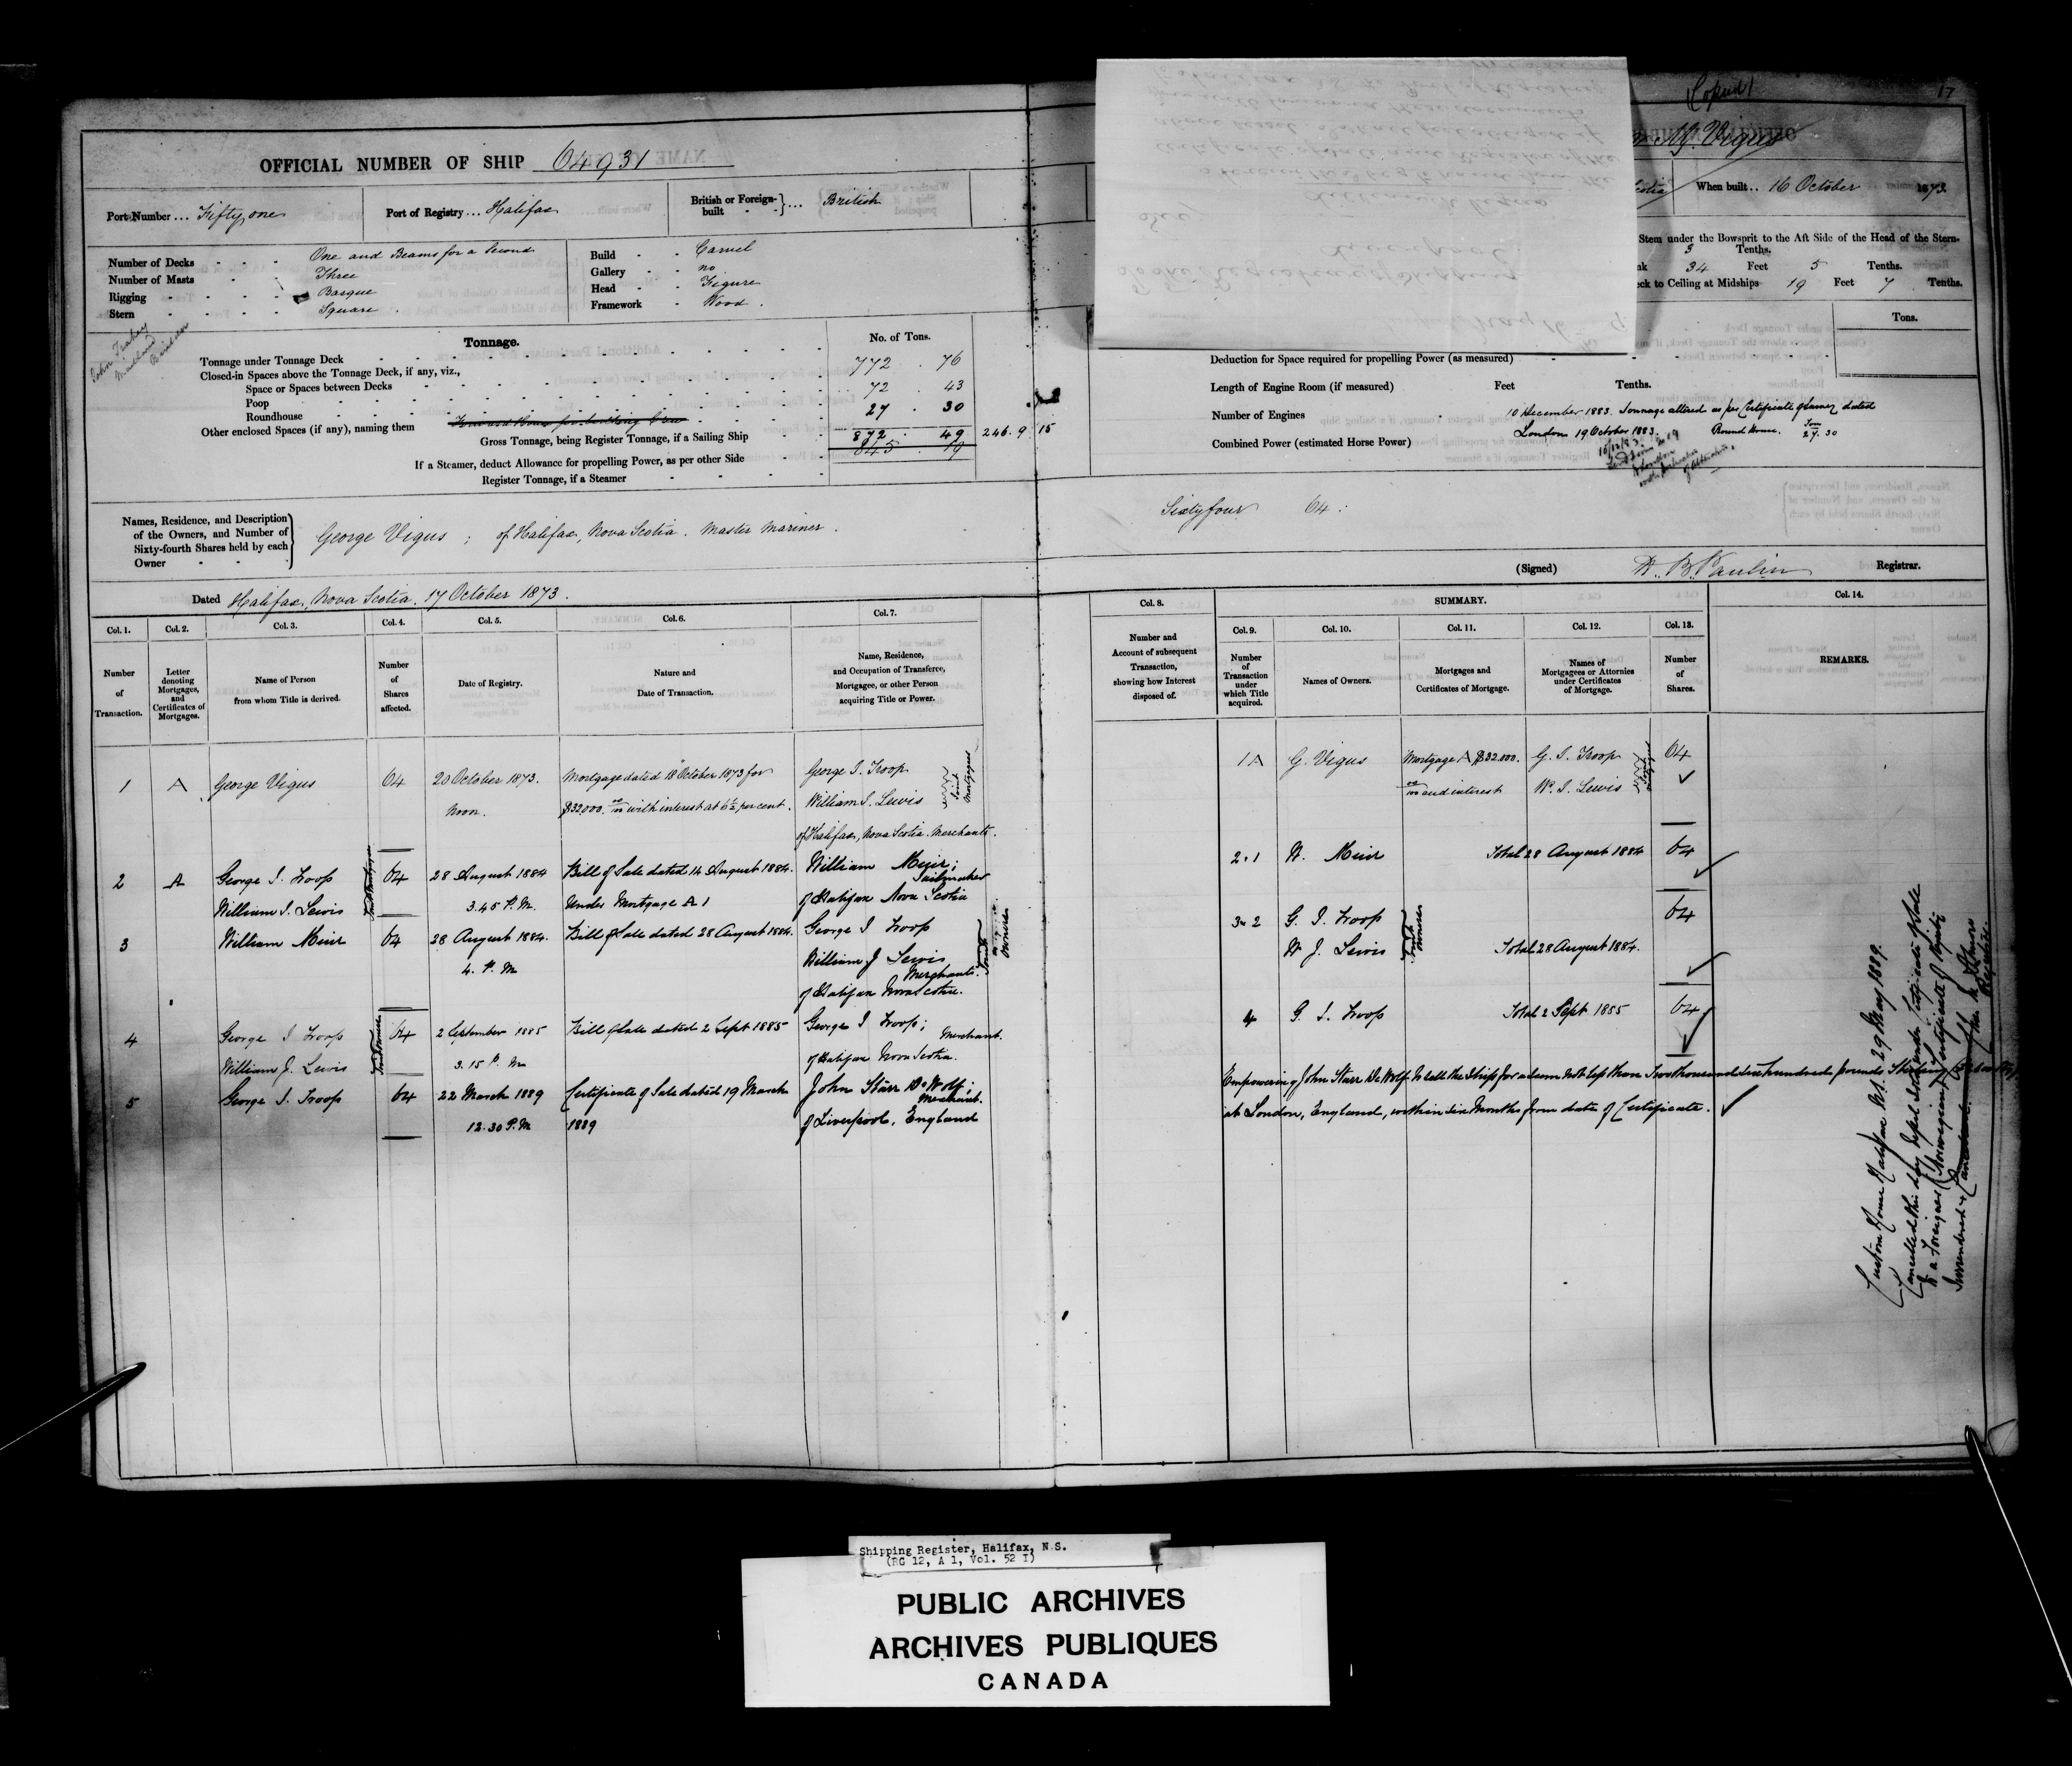 Copied 17
OFFICIAL NUMBER OF SHIP 64931
Port Number ... Fifty one
Port of Registry ... Halifax
British or Foreign-built ... British
Number of Decks One and Beams for a Second
Number of Masts Three
Rigging Barque
Stern Square
Build Carvel
Gallery no
Head Figure
Framework Wood
John
Maitland
Builder
Tonnage.
No. of Tons.
Tonnage under Tonnage Deck 772 . 76
Closed-in Spaces above the Tonnage Deck, if any, viz.,
Space or Spaces between Decks 72 . 43
Poop
Roundhouse 27 . 30
Other enclosed Spaces (if any), naming them
Gross Tonnage, being Register Tonnage, if a Sailing Ship 872 . 49 246.9 15
845 . 19
If a Steamer, deduct Allowance for propelling Power, as per other Side
Register Tonnage, if a Steamer
Names, Residence, and Description of the Owners, and Number of Sixty-fourth Shares held by each Owner
George Vigus ; of Halifax, Nova Scotia . Master Mariner .
Dated Halifax, Nova Scotia. 17 October 1873.
Col. 1. Col. 2. Col. 3. Col. 4. Col. 5. Col. 6. Col. 7.
Number of Transaction.
Letter denoting Mortgages, and Certificates of Mortgages.
Name of Person from whom Title is derived.
Number of Shares affected.
Date of Registry.
Nature and Date of Transaction.
Name, Residence, and Occupation of Transferee, Mortgagee, or other Person acquiring Title or Power.
1 A George Vigus 64 20 October 1873. Mortgage dated 18 October 1873 for George I. Troop
Noon. $32000. 00/100 with interest at 6½ per cent. William I. Lewis Joint Mortgagees
of Halifax, Nova Scotia. Merchants.
2 A George I. Troop 64 28 August 1884 Bill of Sale dated 14 August 1884. William Muir; Sailmaker
William I. Lewis Joint Mortgagees 3.45 P.M. Under Mortgage A 1 of Halifax Nova Scotia
3 William Muir 64 28 August 1884. Bill of Sale dated 28 August 1884. George I Troop
4. P.M William J Lewis Merchants. Joint Owners
of Halifax Nova Scotia.
4 George I Troop 64 2 September 1885 Bill of Sale dated 2 Sept 1885 George I Troop; Merchant.
William J. Lewis Joint Owners 3.15 P. M of Halifax Nova Scotia.
5 George I. Troop 64 22 March 1889 Certificate of Sale dated 19 March John Starr DeWolf; Merchant.
12.30 P.M 1889 of Liverpool, England
Vigus
When built .. 16 October 1873.
Stem under the Bowsprit to the Aft Side of the Head of the Stern-
3 Tenths.
34 Feet 5 Tenths.
to Ceiling at Midships 19 Feet 7 Tenths.
Tons.
Deduction for Space required for propelling Power (as measured)
Length of Engine Room (if measured) Feet Tenths.
Number of Engines
Combined Power (estimated Horse Power)
10 December 1883. Tonnage altered as per Certificate of Survey dated
London 19 October 1883. Round House. Tons 27.30
Sixty four 64 :
(Signed) Registrar.
Col. 8. SUMMARY. Col. 14.
Col. 9. Col. 10. Col. 11. Col. 12. Col. 13.
Number and Account of subsequent Transaction, showing how Interest disposed of.
Number of Transaction under which Title acquired.
Names of Owners.
Mortgages and Certificates of Mortgage.
Names of Mortgagees or Attornies under Certificates of Mortgage.
Number of Shares.
REMARKS.
1 A G. Vigus Mortgage A $32.000. G. I. Troop 64
00/100 and interest Wm. I. Lewis
2 . 1 W. Muir Total 28 August 1884 64
3 . 2 G. I. Troop 64
W J. Lewis Joint Owners Total 28 August 1884.
4 G. I. Troop Total 2 Sept 1885 64
Empowering John Starr DeWolf to sell the Ship for a sum not less than Two thousand six hundred pounds Sterling
at London, England, within six Months from date of Certificate.
Custom House Halifax N.S. 29 May 1889.
Cancelled this day Vessel sold under Certificate of Sale
to a Foreigner (Norwegian) Certificate of Registry
surrendered &
Registrar.
Shipping Register, Halifax, N.S.
(RG 12, A 1, Vol. 52 I)
PUBLIC ARCHIVES
ARCHIVES PUBLIQUES
CANADA